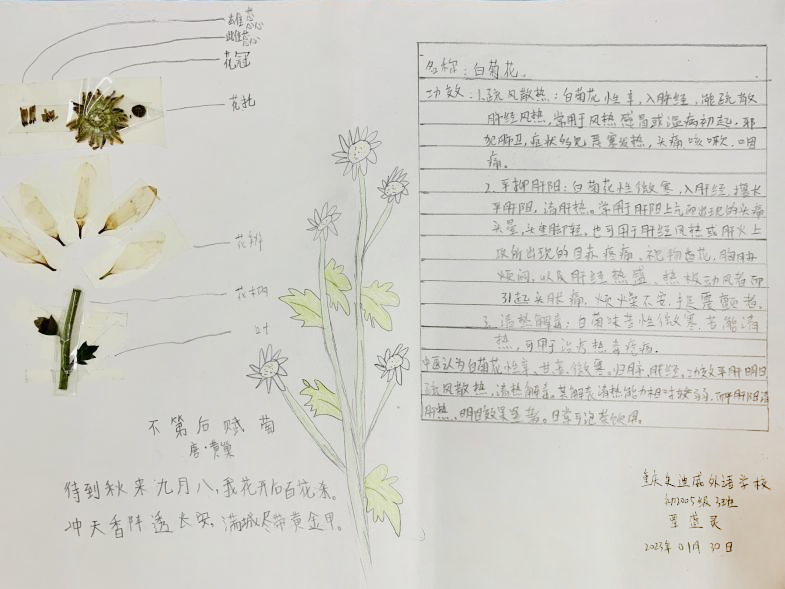 雄蕊
雌蕊
花冠
花托
花瓣
花柄
叶
不第后赋菊
唐·黄巢
待到秋来九月八,我花开后百花杀。
冲天香阵透长安,满城尽带黄金甲。
名称:白菊花。
功效:1.疏风散热:白菊花性辛,入肺经,能疏散
肺经风热,常用于风热感冒或温病初起,邪
犯肺卫,症状多见恶寒发热,头痛咳嗽、咽
痛。
2.平抑肝阳:白菊花性微寒,入肝经,擅长
平肝阳,清肝热。常用于肝阳上亢而出现的头痛
头晕,头重脚轻,也可用于肝经风热或肝火上
攻所出现的目赤疼痛、视物昏花,胸胁
烦闷,以及肝经热盛、热极动风者而
引起头胀痛,烦燥不安,手足震颤者。
3.清热解毒:白菊味苦性微寒,苦能清
热,可用于治疗热毒疮疡。
中医认为白菊花性辛、甘苦、微寒,归肺、肝经,功效平肝明目
疏风散热,清热解毒。其解表清热能力相对较弱,而平肝阳清
肝热、明目效果显著。日常可泡茶饮用。
重庆
外语学校
初2005级3班
2023年01月30日